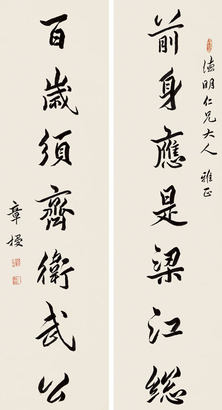 德明仁兄大人 雅正
前身應是梁江總
百歲須齊衛武公
章梫